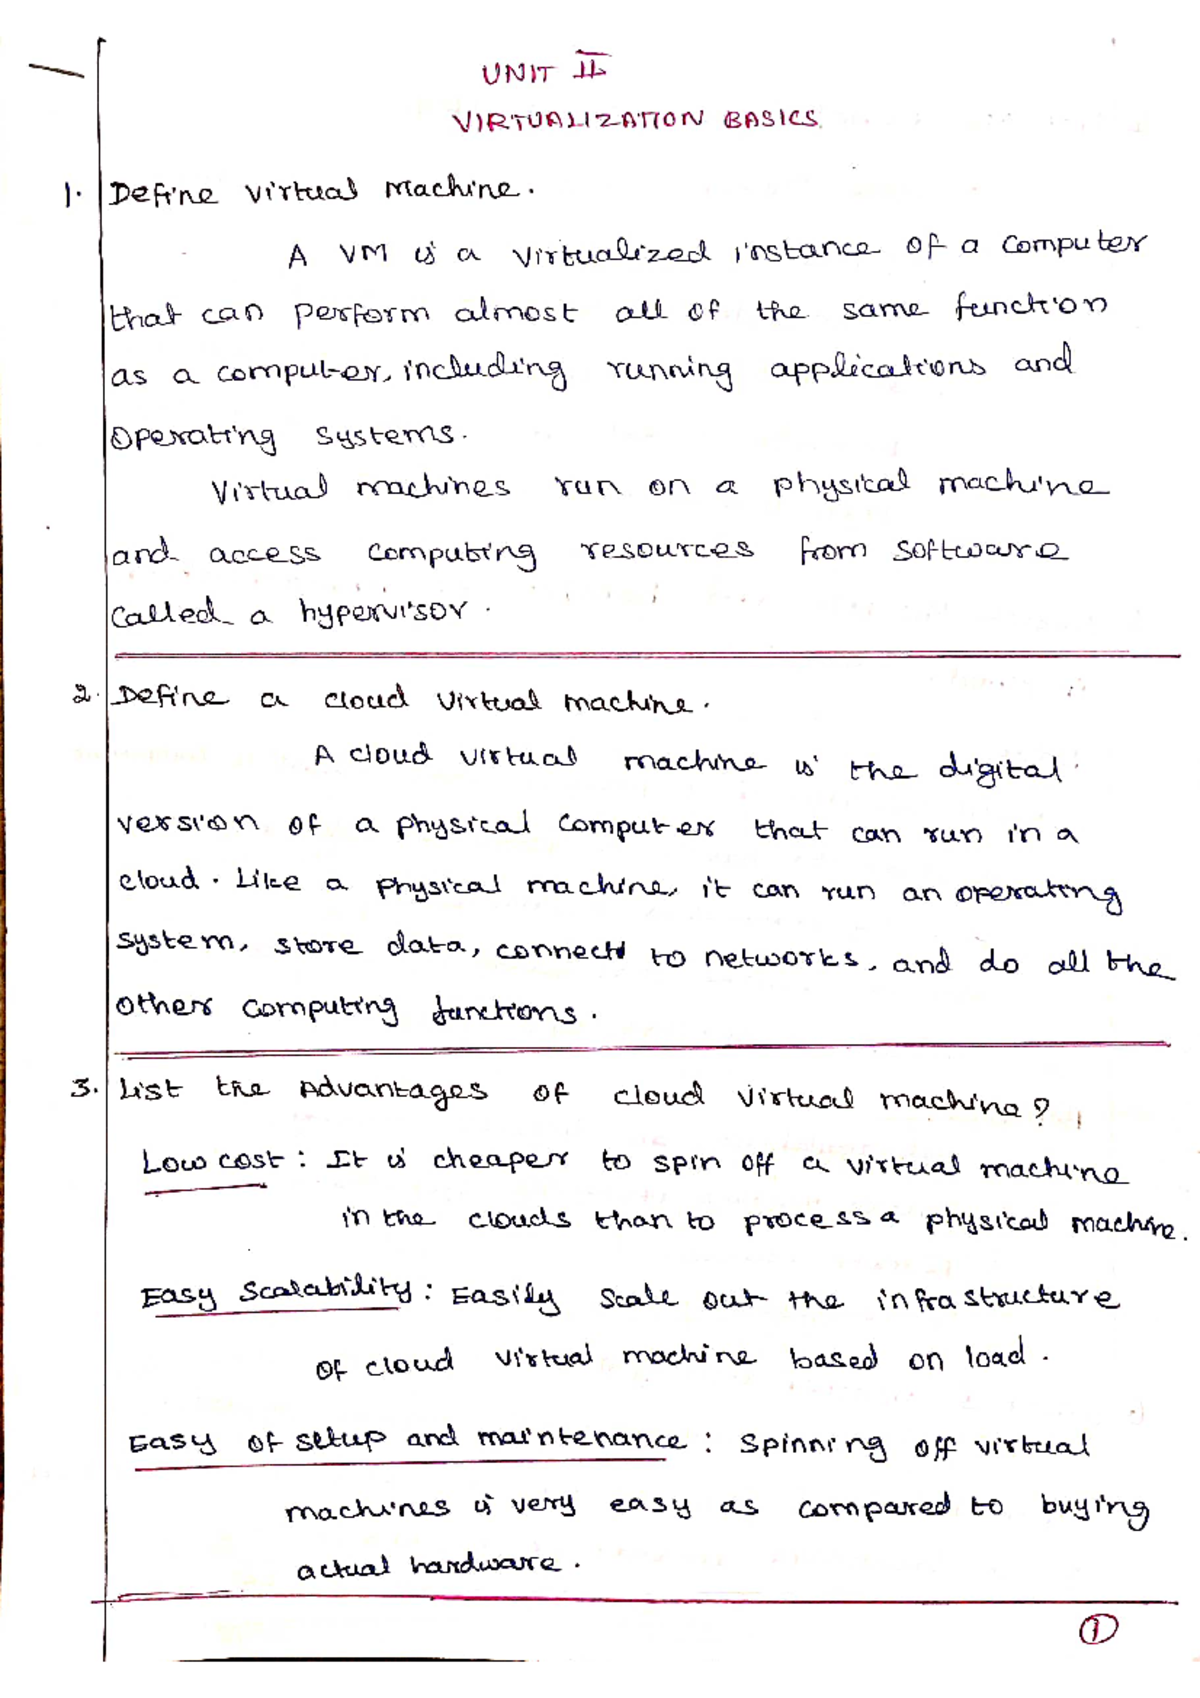 UNIT II
VIRTUALIZATION BASICS.
1. Define virtual machine.
A VM is a virtualized instance of a computer
that can perform almost all of the same function
as a computer, including running applications and
operating systems.
Virtual machines run on a physical machine
and access computing resources from software
called a hypervisor.
2. Define a cloud virtual machine.
A cloud virtual machine is the digital
version of a physical computer that can run in a
cloud. Like a physical machine, it can run an operating
system, store data, connect to networks, and do all the
other computing functions.
3. List the Advantages of cloud virtual machine?
Low cost: It is cheaper to spin off a virtual machine
in the clouds than to process a physical machine.
Easy Scalability: Easily scale out the infrastructure
of cloud virtual machine based on load.
Easy of setup and maintenance: Spinning off virtual
machines is very easy as compared to buying
actual hardware.
1